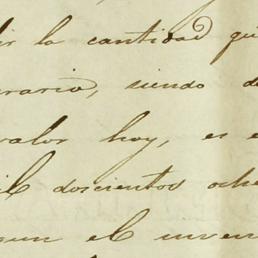 ir la cantidad qu
rario, siendo d
valor hoy, es e
il doscientos oche
gun el inven